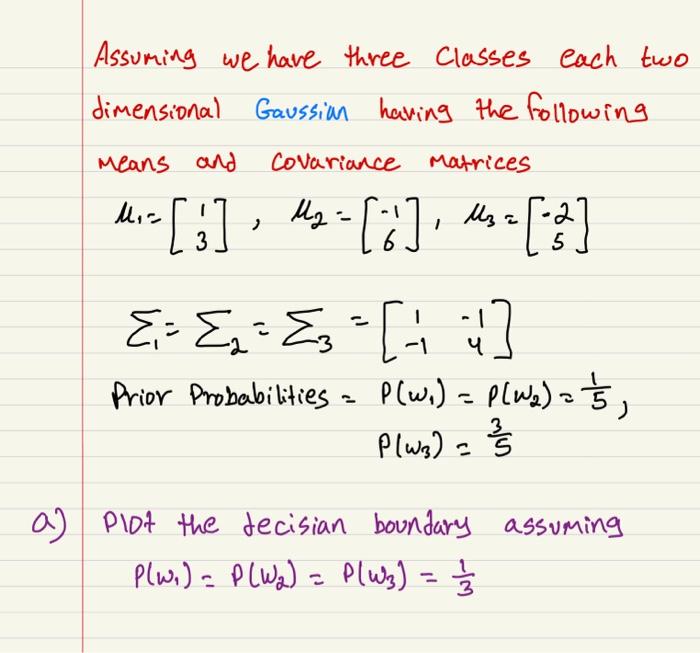 Assuming we have three Classes each two
dimensional Gaussian having the following
Means and Covariance Matrices
μ₁ = [1 3], μ₂ = [-1 6], μ₃ = [-2 5]
Σ₁ = Σ₂ = Σ₃ = [1 -1 -1 4]
Prior Probabilities = P(w₁) = P(w₂) = 1/5,
P(w₃) = 3/5
a) Plot the decisian boundary assuming
P(w₁) = P(w₂) = P(w₃) = 1/3